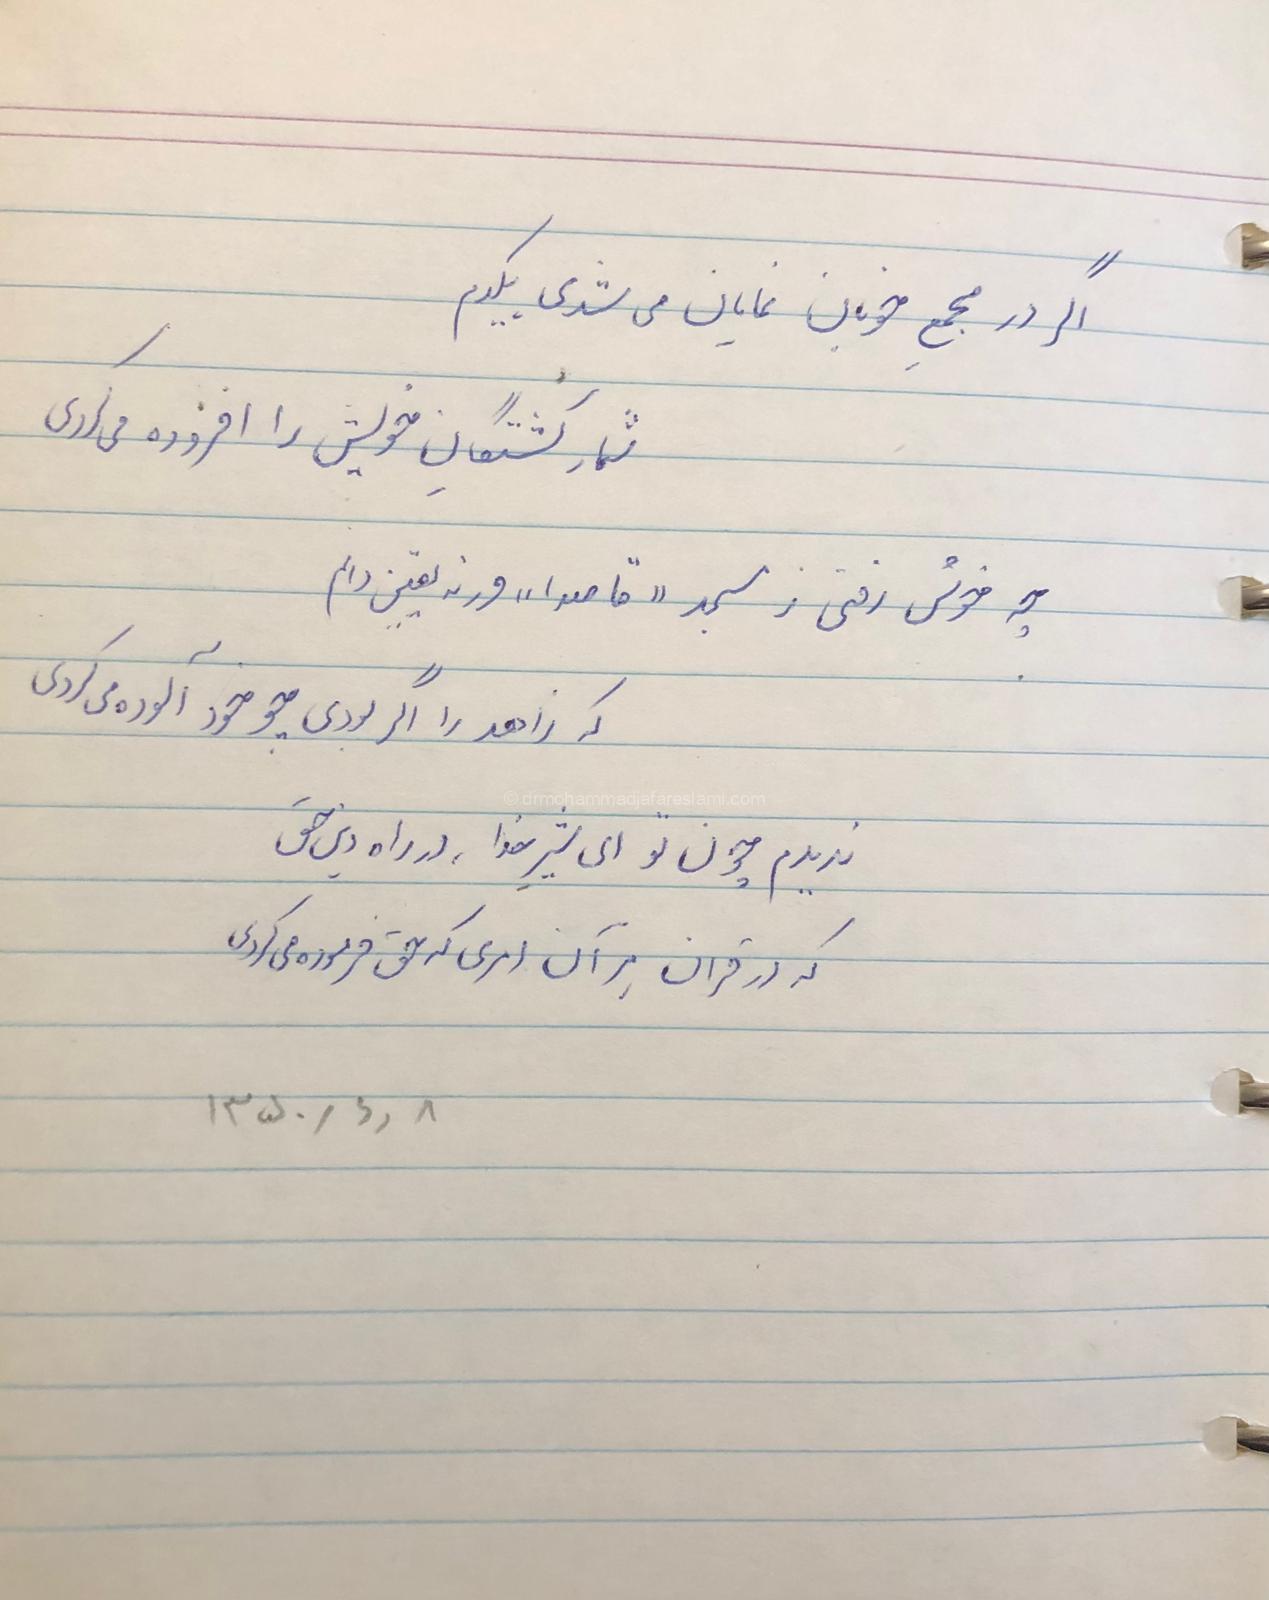 اگر در مجمعِ خوبان نمایان می شدی یکدم
شمار کُشتگانِ خویش را افزوده می‌کردی
چه خوش رفتی ز مسجد «قاصدا» ورنه یقین دانم
که زاهد را اگر بودی چو خود آلوده می کردی
© drmohammadjafareslami.com
ندیدم چون تو ای شیرِ خدا، در راه دین حق
که در قرآن هر آن امری که حق فرموده می کردی